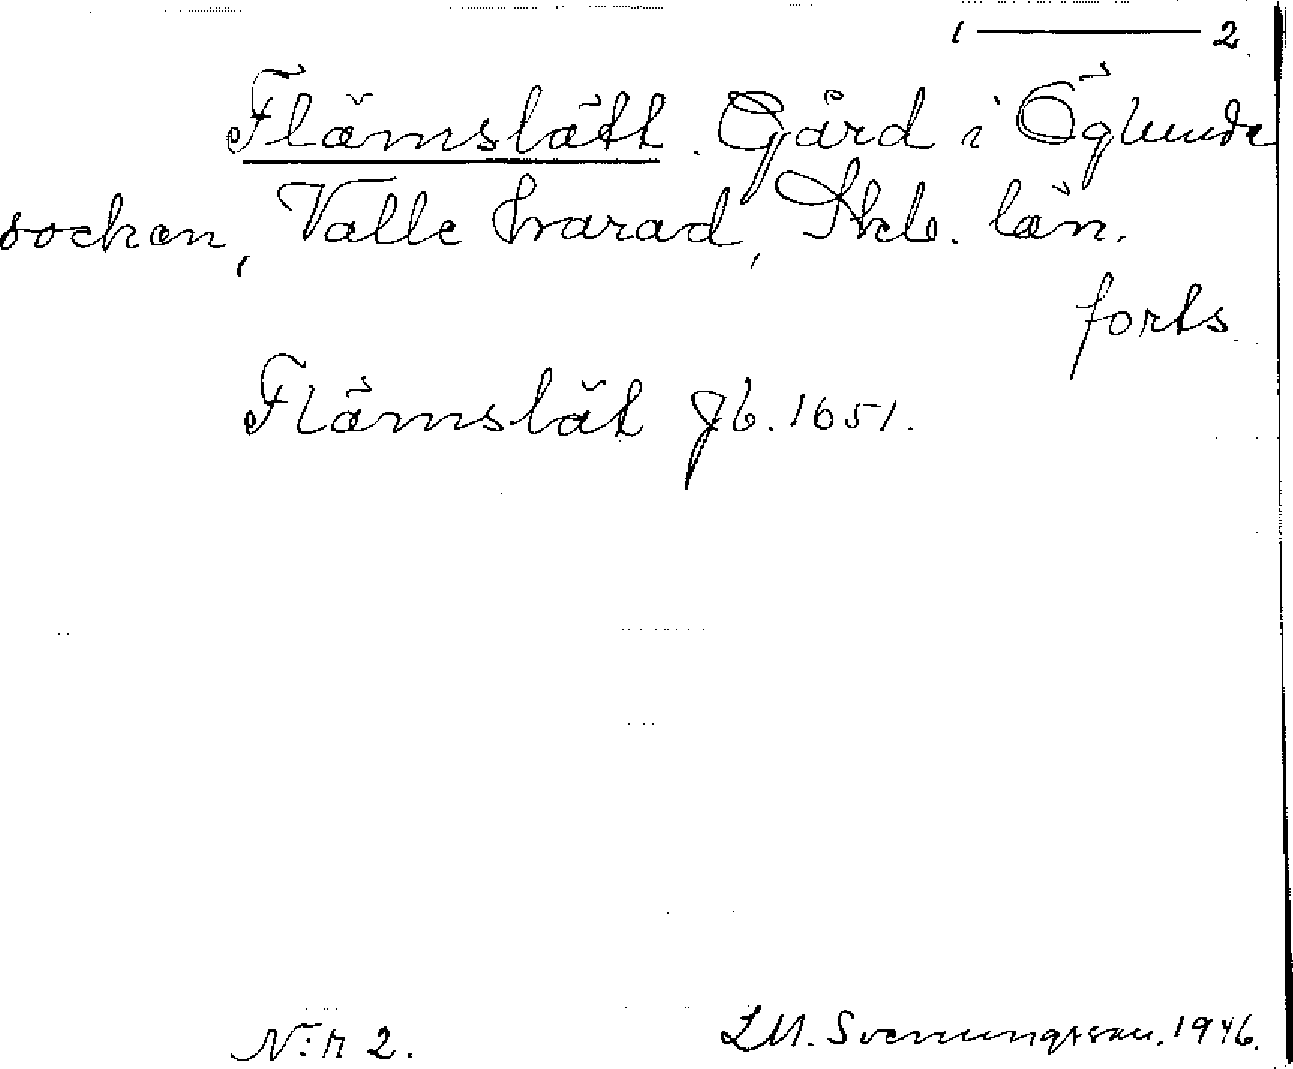 1 — 2
Flämslätt. Gård i Öglunda
socken, Valle härad, Skb. län.
forts
Flämslät Jb. 1651.
N:r 2. L.M. Svenungsson. 1946.